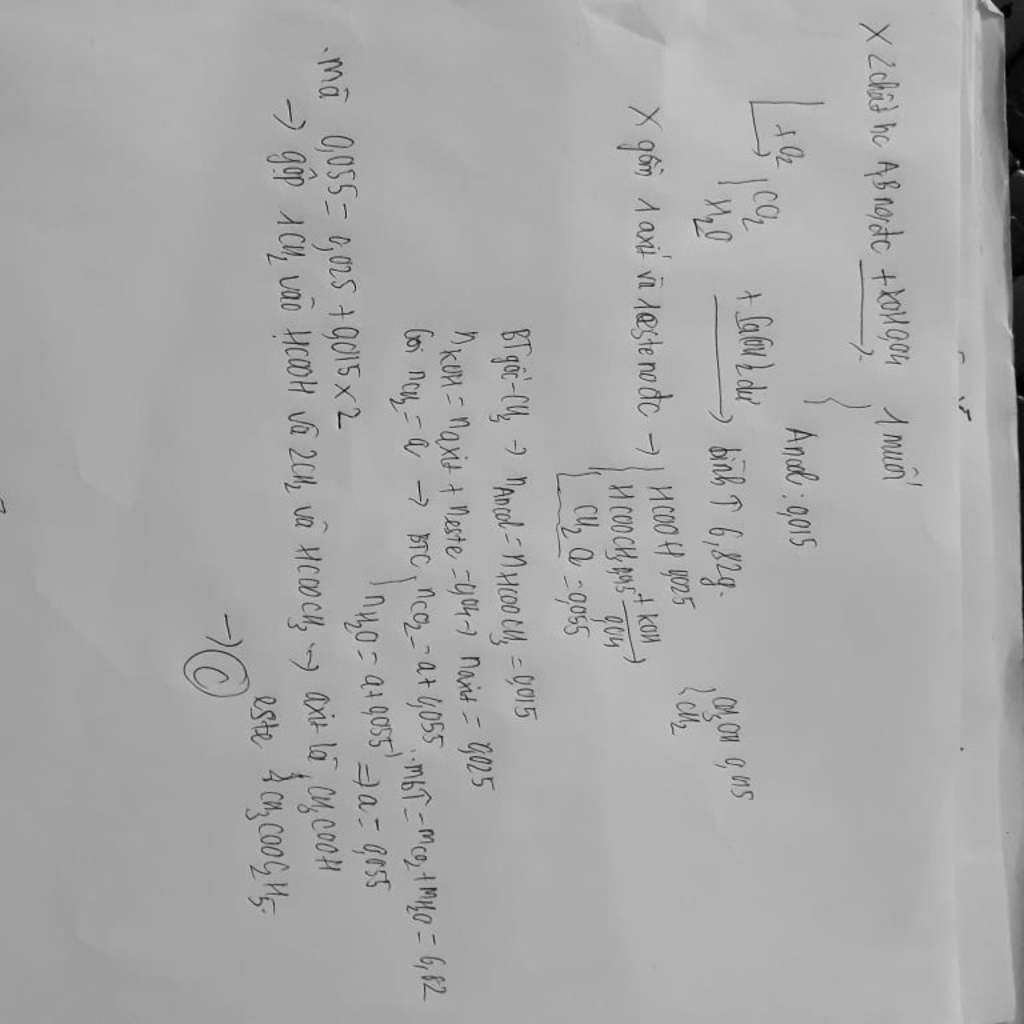 X 2 chất hc A,B no, đc + KOH 0,04 → 1 muối
Ancol : 0,015
+ O2 → CO2
H2O
+ Ca(OH)2 dư → bình ↑ 6,82g.
CH3OH 0,015
CH2
X gồm 1 axit và 1 este no đc → HCOOH 0,025
HCOOCH3 0,015 + KOH 0,04 →
CH2 a = 0,055
BT gốc -CH3 → nAncol = nHCOOCH3 = 0,015
nKOH = naxit + neste = 0,04 → naxit = 0,025
Gọi nCH2 = a → BTC, nCO2 = a + 0,055
nH2O = a + 0,055
mb↑ = mCO2 + mH2O = 6,82
=> a = 0,055
. mà 0,055 = 0,025 + 0,015 x 2
→ gộp 1CH2 vào HCOOH và 2CH2 và HCOOCH3 → axit là CH3COOH
este là CH3COOC2H5.
→ C